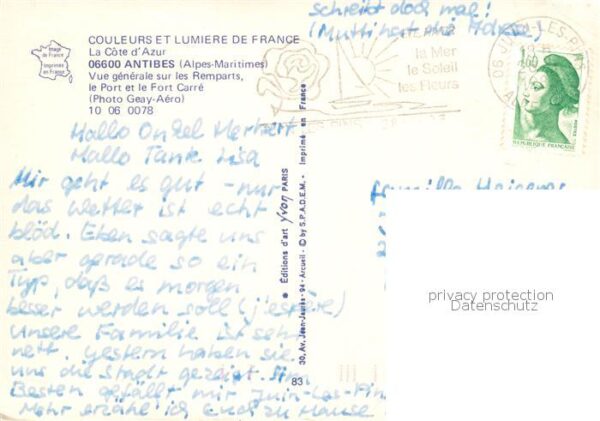 schreibt doch mal!
(Mutti hat die Adresse)
COULEURS ET LUMIERE DE FRANCE
La Côte d'Azur
06600 ANTIBES (Alpes-Maritimes)
Vue générale sur les Remparts,
le Port et le Fort Carré
(Photo Geay-Aéro)
10 06 0078
Image de France
Imprimée en France
la Mer
le Soleil
les Fleurs
06 JUAN-LES-PINS
REPUBLIQUE FRANCAISE
Hallo Onkel Herbert
Hallo Tante Lisa
Mir geht es gut - nur
das Wetter ist echt
blöd. Eben sagte uns
aber gerade so ein
Typ, daß es morgen
besser werden soll (j'espère)
Unsere Familie ist sehr
nett. Gestern haben sie
uns die Stadt gezeigt. Am
Besten gefällt mir Juan-Les-Pin
Mehr erzähle ich Euch zu Hause
Editions d'art Yvon PARIS
30, Av. Jean-Jaurès - 94 - Arcueil - © by S.P.A.D.E.M. - Imprimé en France
83
Familie
privacy protection
Datenschutz